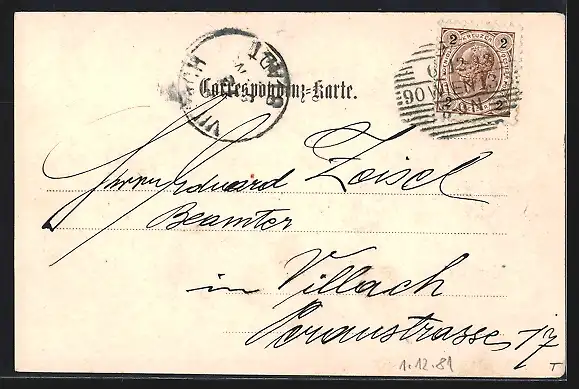 Correspondenz=Karte.
2 KREUZER 2
VILLACH STADT
90 WIEN
Herrn Eduard Zeisel
Beamter
in Villach
Peraustrasse 17
1.12.81
T